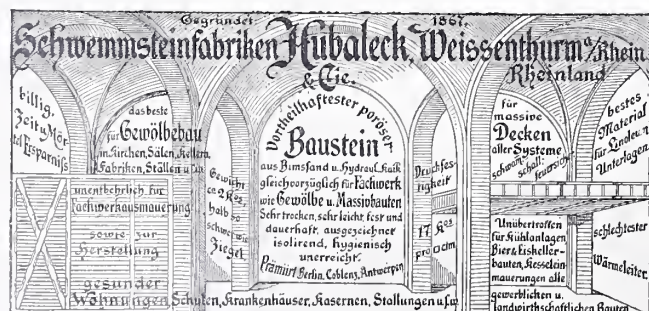 Gegründet 1867.
Schwemmsteinfabriken Hubaleck, Weissenthurm a/Rhein
& Cie. Rheinland
billig,
Zeit u. Mör-
tel Ersparniss
das beste
für Gewölbebau
in Kirchen, Sälen, Kellern,
Fabriken, Ställen u.s.w.
unentbehrlich für
Fachwerkausmauerung
sowie zur
Herstellung
gesunder
Wohnungen, Schulen, Krankenhäuser, Kasernen, Stallungen u.s.w.
Gewicht
ca 2 Kos,
halb so
schwer wie
Ziegel.
Vortheilhaftester poröser
Baustein
aus Bimssand u. Hydraul. Kalk
gleich vorzüglich für Fachwerk
wie Gewölbe u. Massivbauten
Sehr trocken, sehr leicht, fest und
dauerhaft, ausgezeichnet
isolirend, hygienisch
unerreicht.
Prämiirt Berlin, Coblenz, Antwerpen
Druckfes-
tigkeit
17 Kos
pro □cm.
für
massive
Decken
aller Systeme
schwamm-
schall-
feuersicher
bestes
Material
für Linoleum
Unterlagen
Unübertroffen
für Kühlanlagen
Bier & Eiskeller-
bauten, Kesselein-
mauerungen alle
gewerblichen u.
landwirthschaftlichen Bauten
schlechtester
Wärmeleiter.